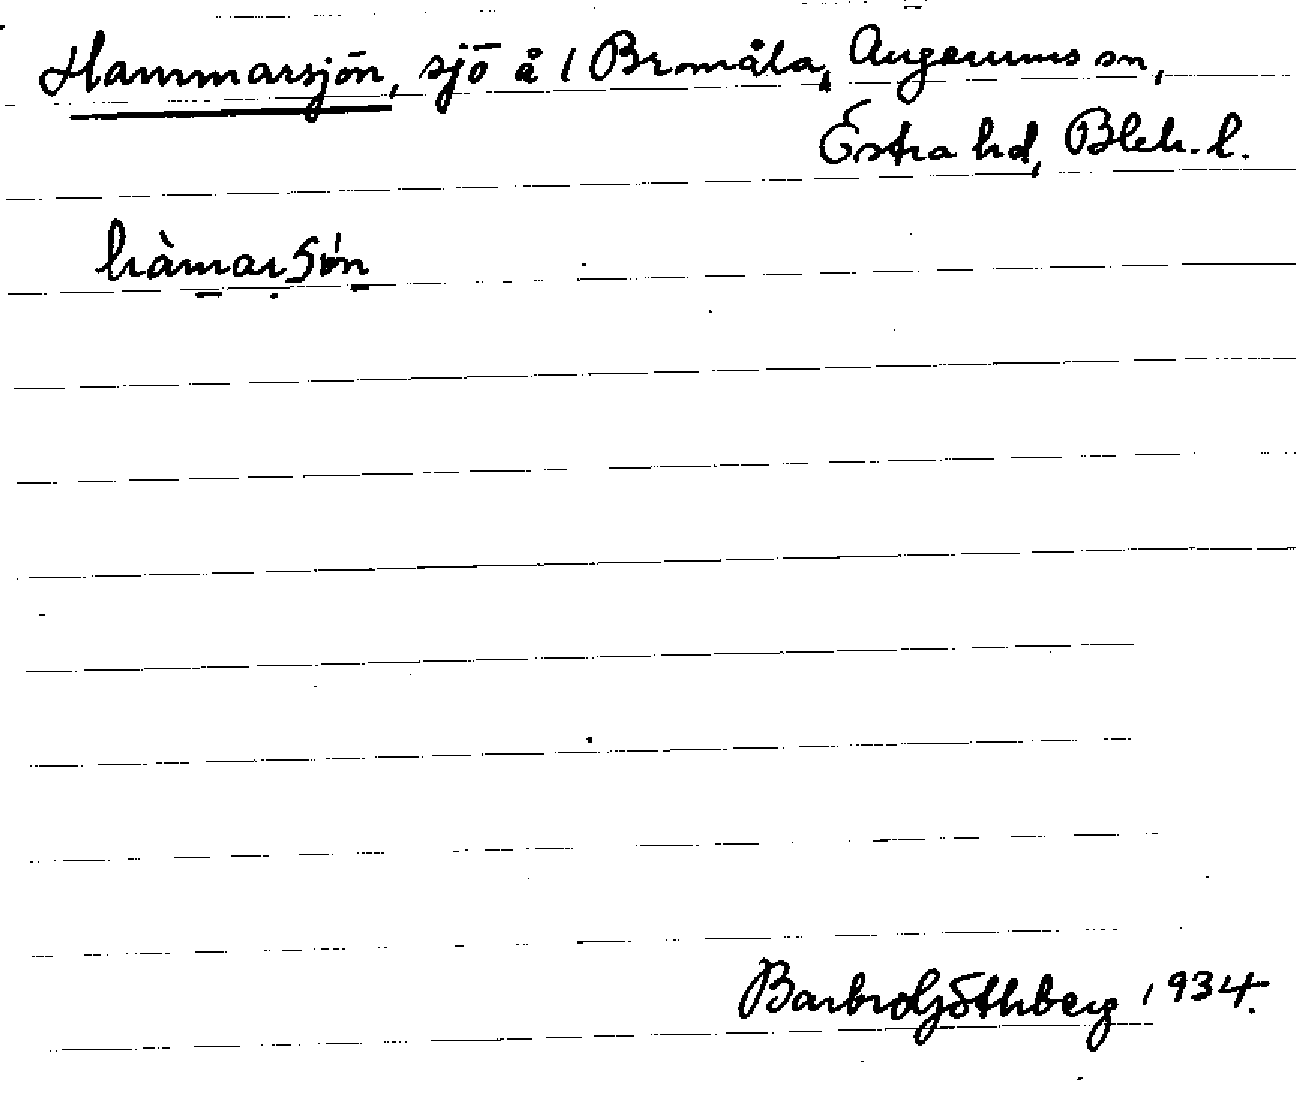 Hammarsjön, sjö å 1 Bromåla, Augerums sn,
Östra hd, Blek. l.
hàmarʃøn
Barbro Göthberg 1934.